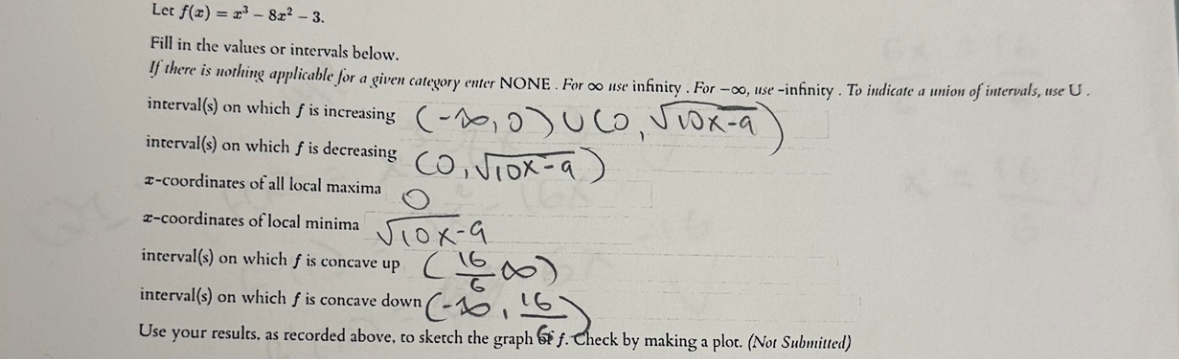 Let f(x) = x³ − 8x² − 3.
Fill in the values or intervals below.
If there is nothing applicable for a given category enter NONE . For ∞ use infinity . For −∞, use -infinity . To indicate a union of intervals, use U .
interval(s) on which f is increasing (-∞, 0) ∪ (0, √10x-9)
interval(s) on which f is decreasing (0, √10x-9)
x-coordinates of all local maxima 0
x-coordinates of local minima √10x-9
interval(s) on which f is concave up (16/6 ∞)
interval(s) on which f is concave down (-∞, 16/6)
Use your results, as recorded above, to sketch the graph of f. Check by making a plot. (Not Submitted)